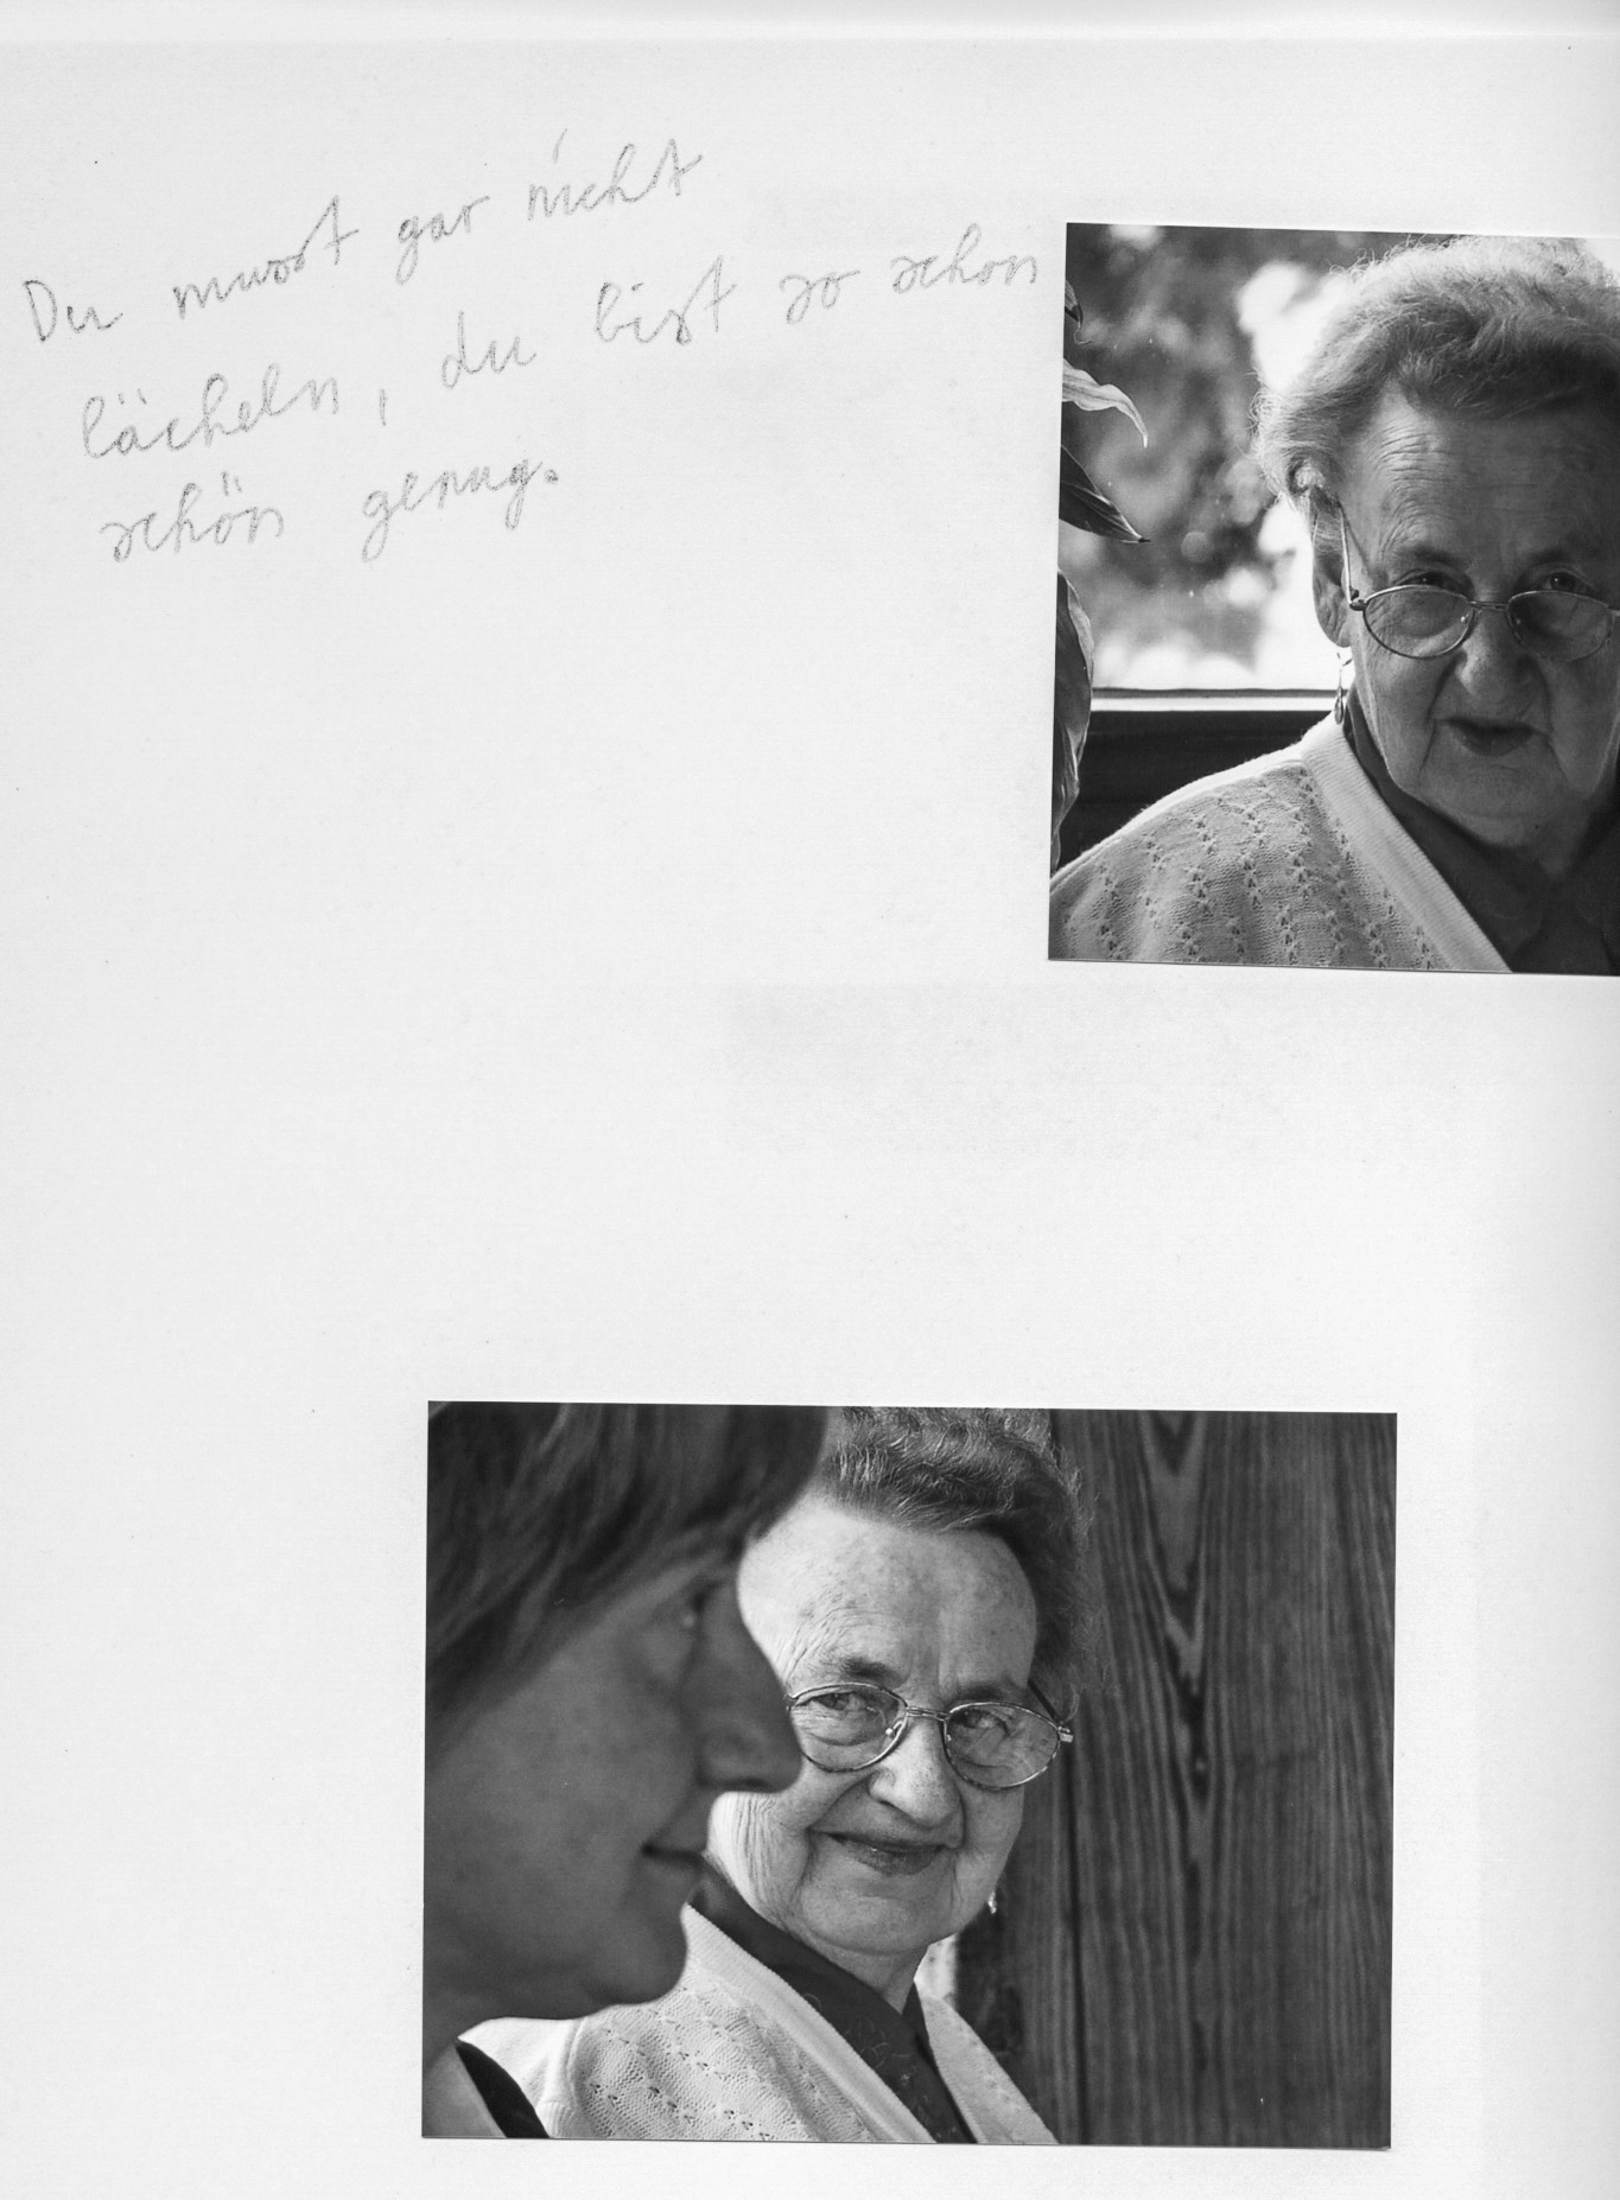 Du musst gar nicht
lächeln, du bist so schon
schön genug.